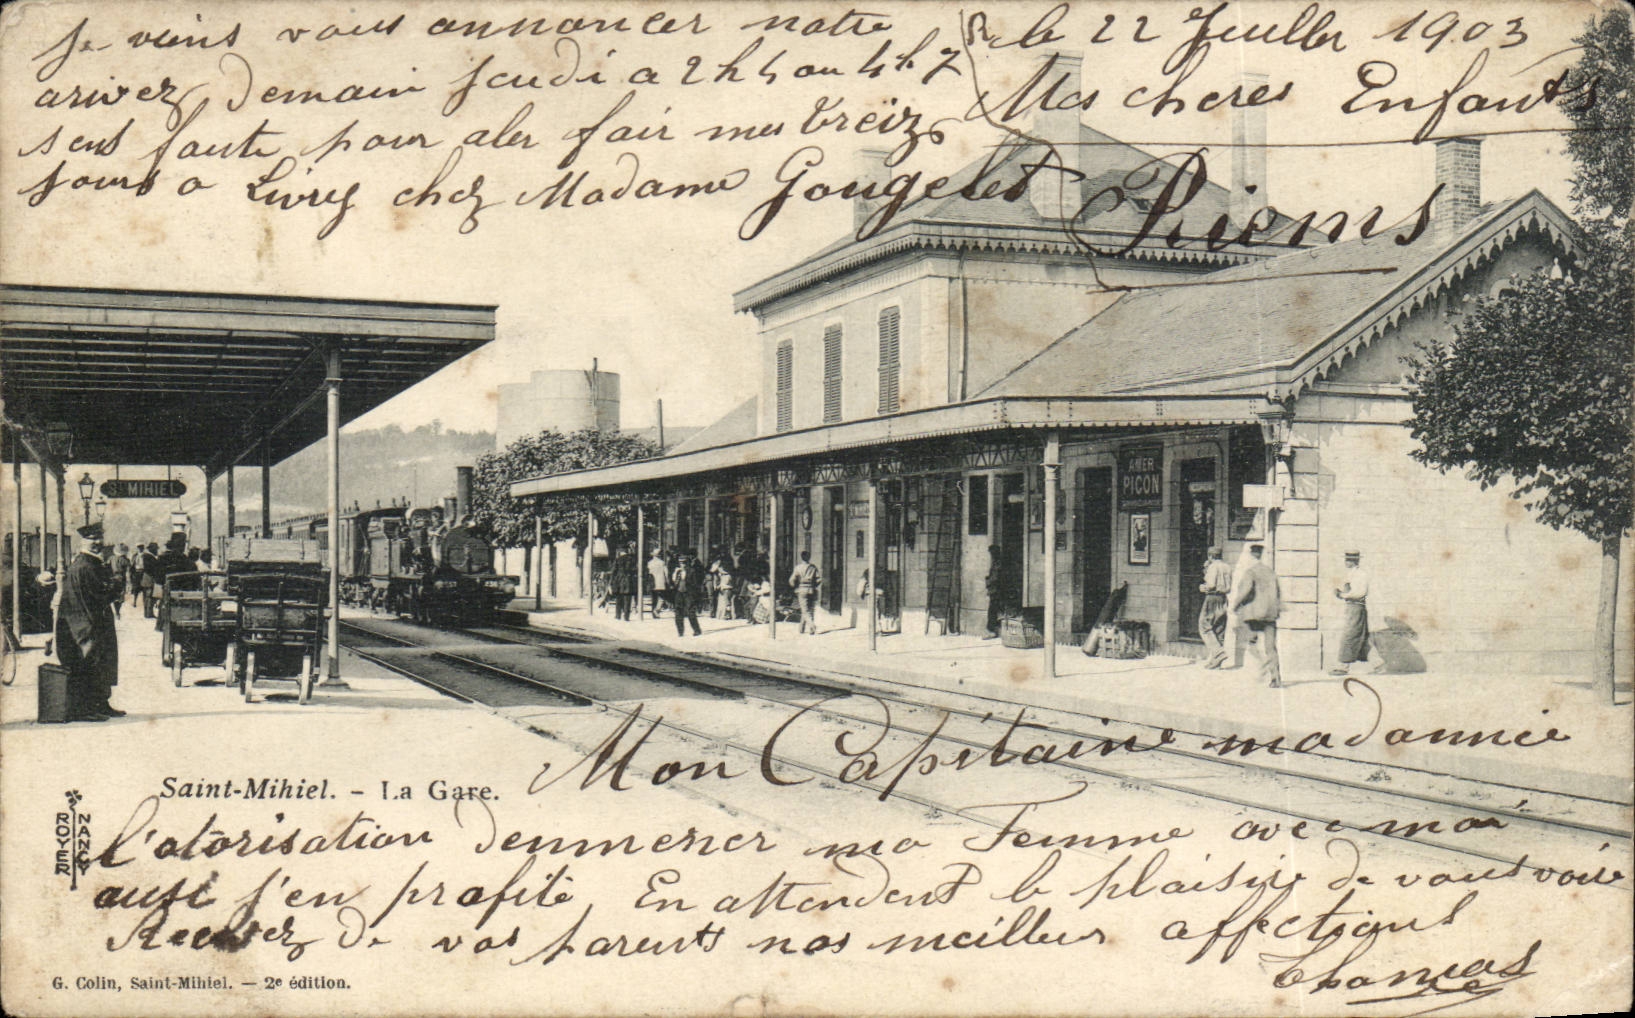 le 22 Juillet 1903
Mes cheres Enfants
Riems
Je viens vous annoncer notre
arivez demain Jeudi a 2 h 4 ou 4 h 7
sens faute pour aler fair mes treize
jours a Livry chez Madame Gougelet
ST MIHIEL
AMER
PICON
Mon Capitaine madonnée
Saint-Mihiel. - La Gare.
l'otorisation denmener ma Femme avec moi
ausi j'en profite, En attendent le plaisire de vous voire
Recevez de vos parents nos meilleur affections
Thomas
ROYER
NANCY
G. Colin, Saint-Mihiel. — 2e édition.